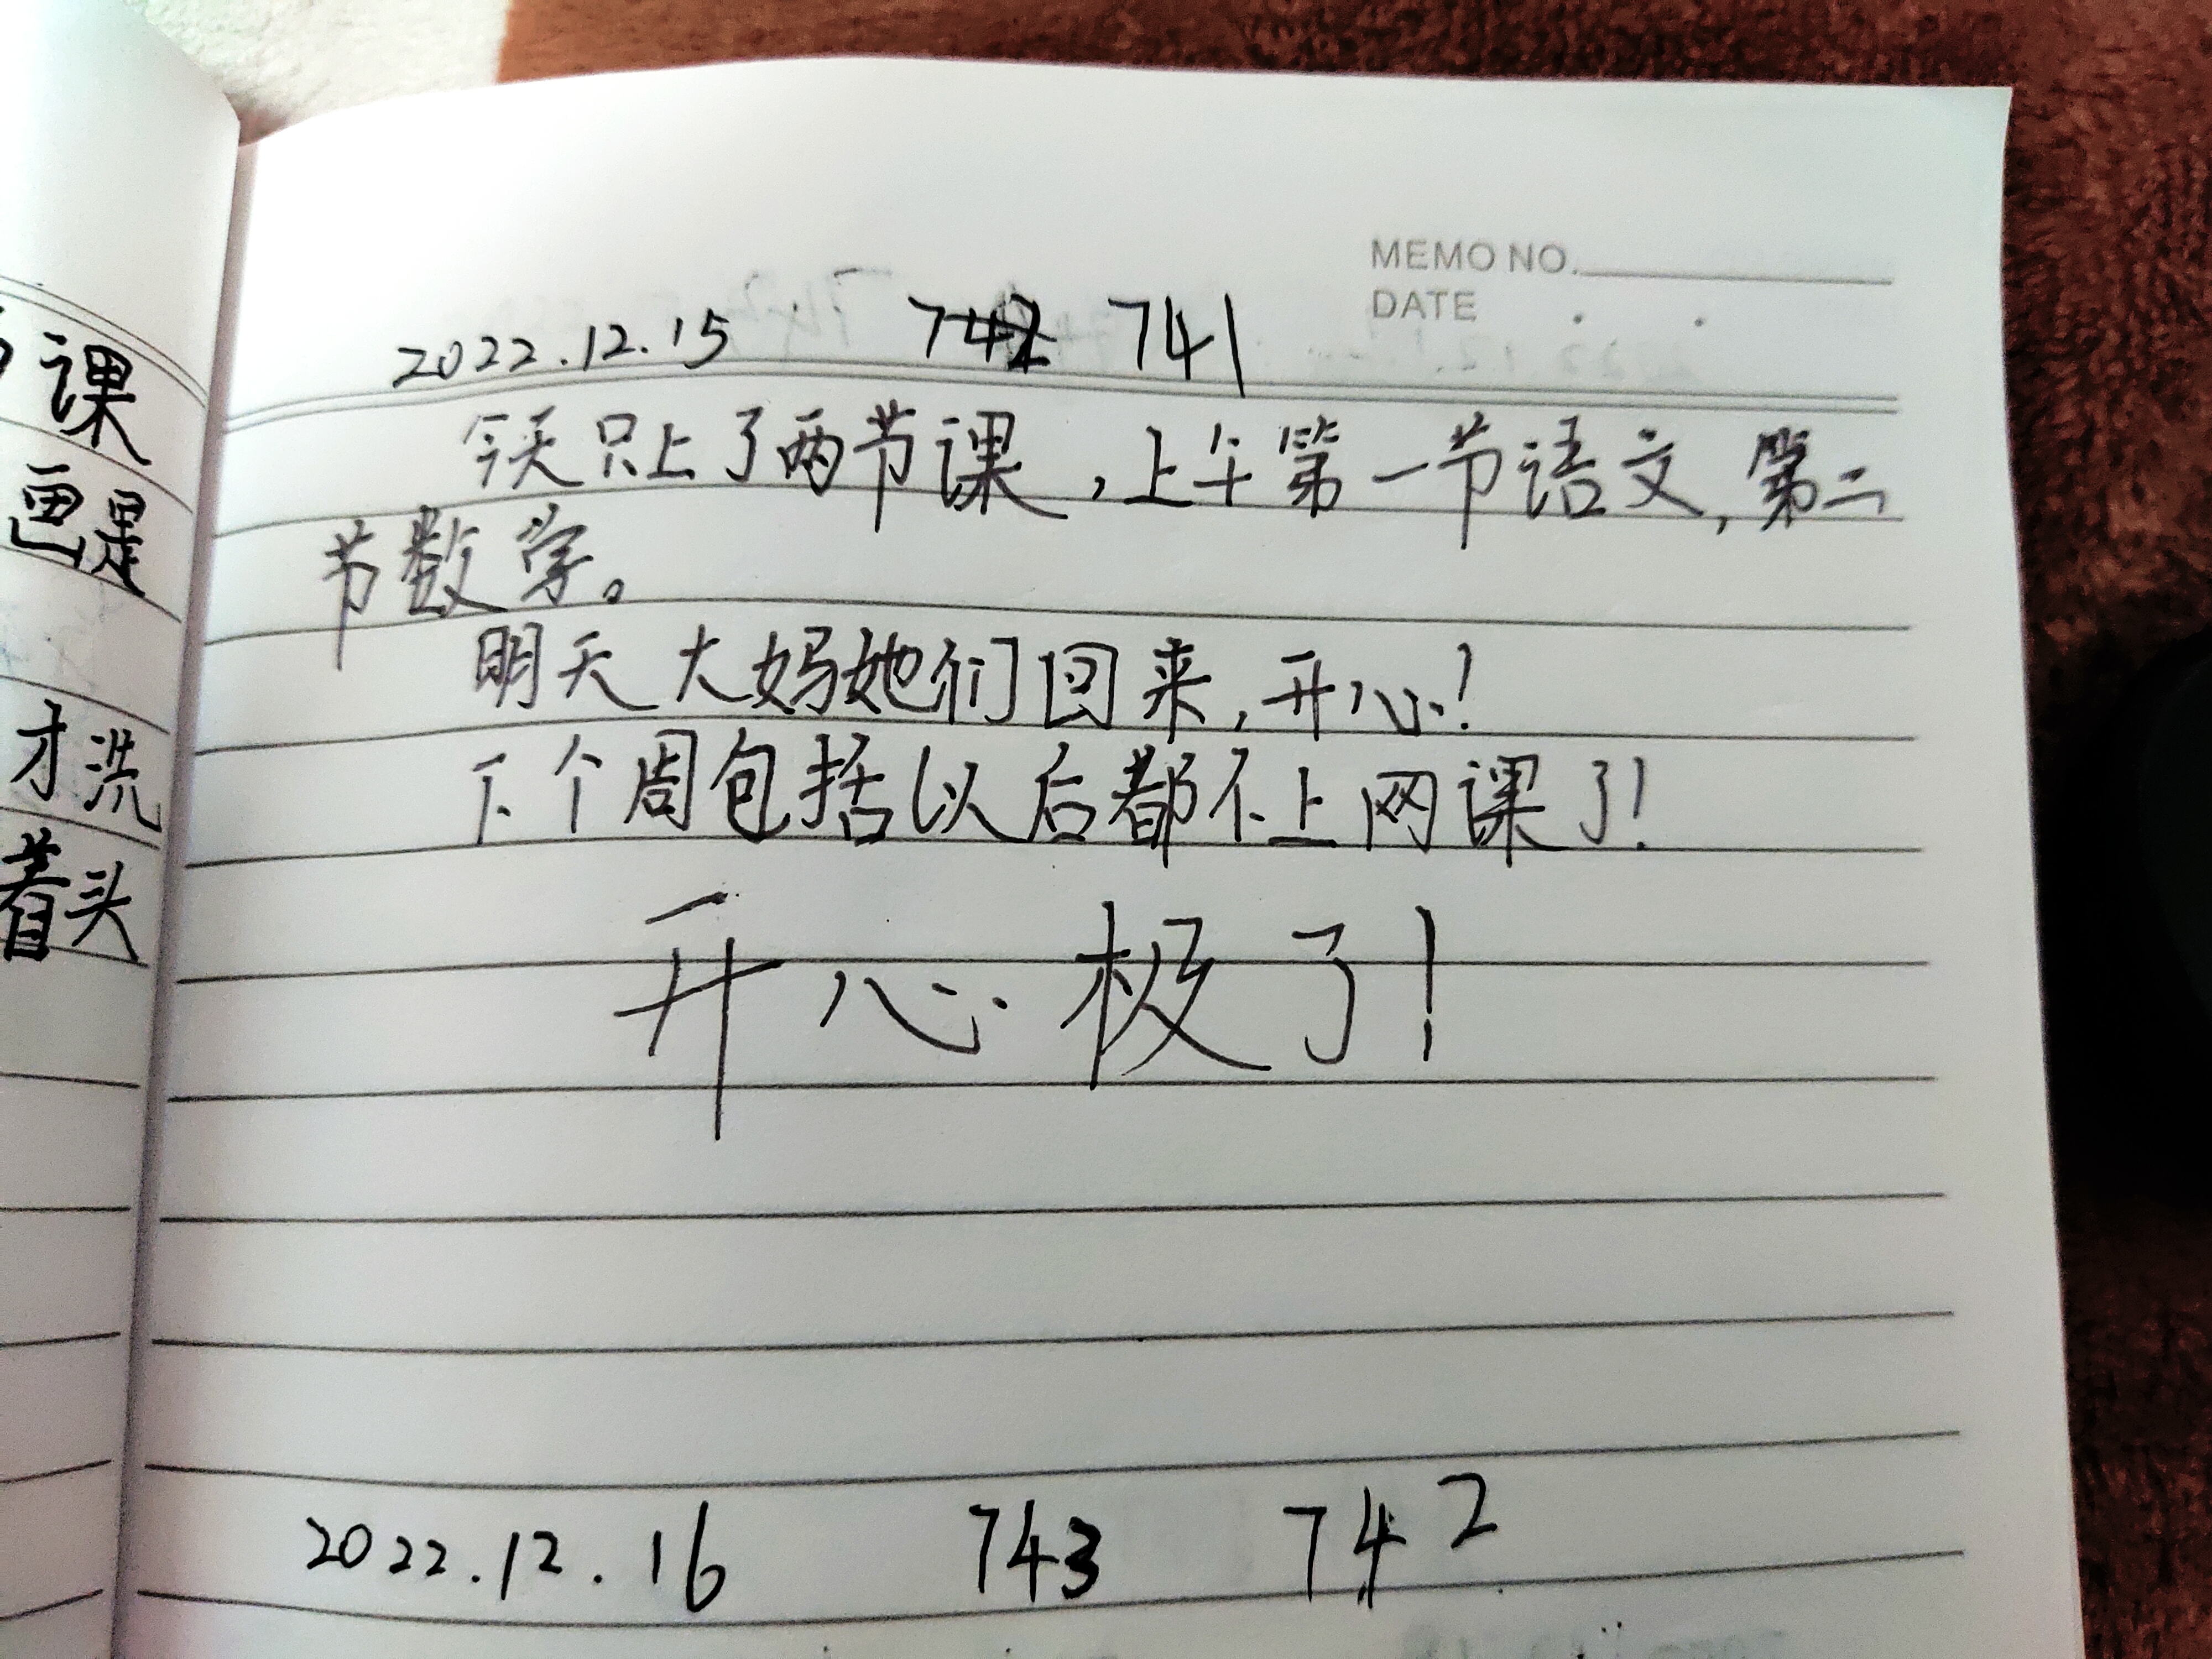 课
画是
才洗
着头
MEMO NO.
DATE
2022.12.15 742 741
今天只上了两节课,上午第一节语文,第二
节数学。
明天大妈她们回来,开心!
下个周包括以后都不上网课了!
开心极了!
2022.12.16 743 742